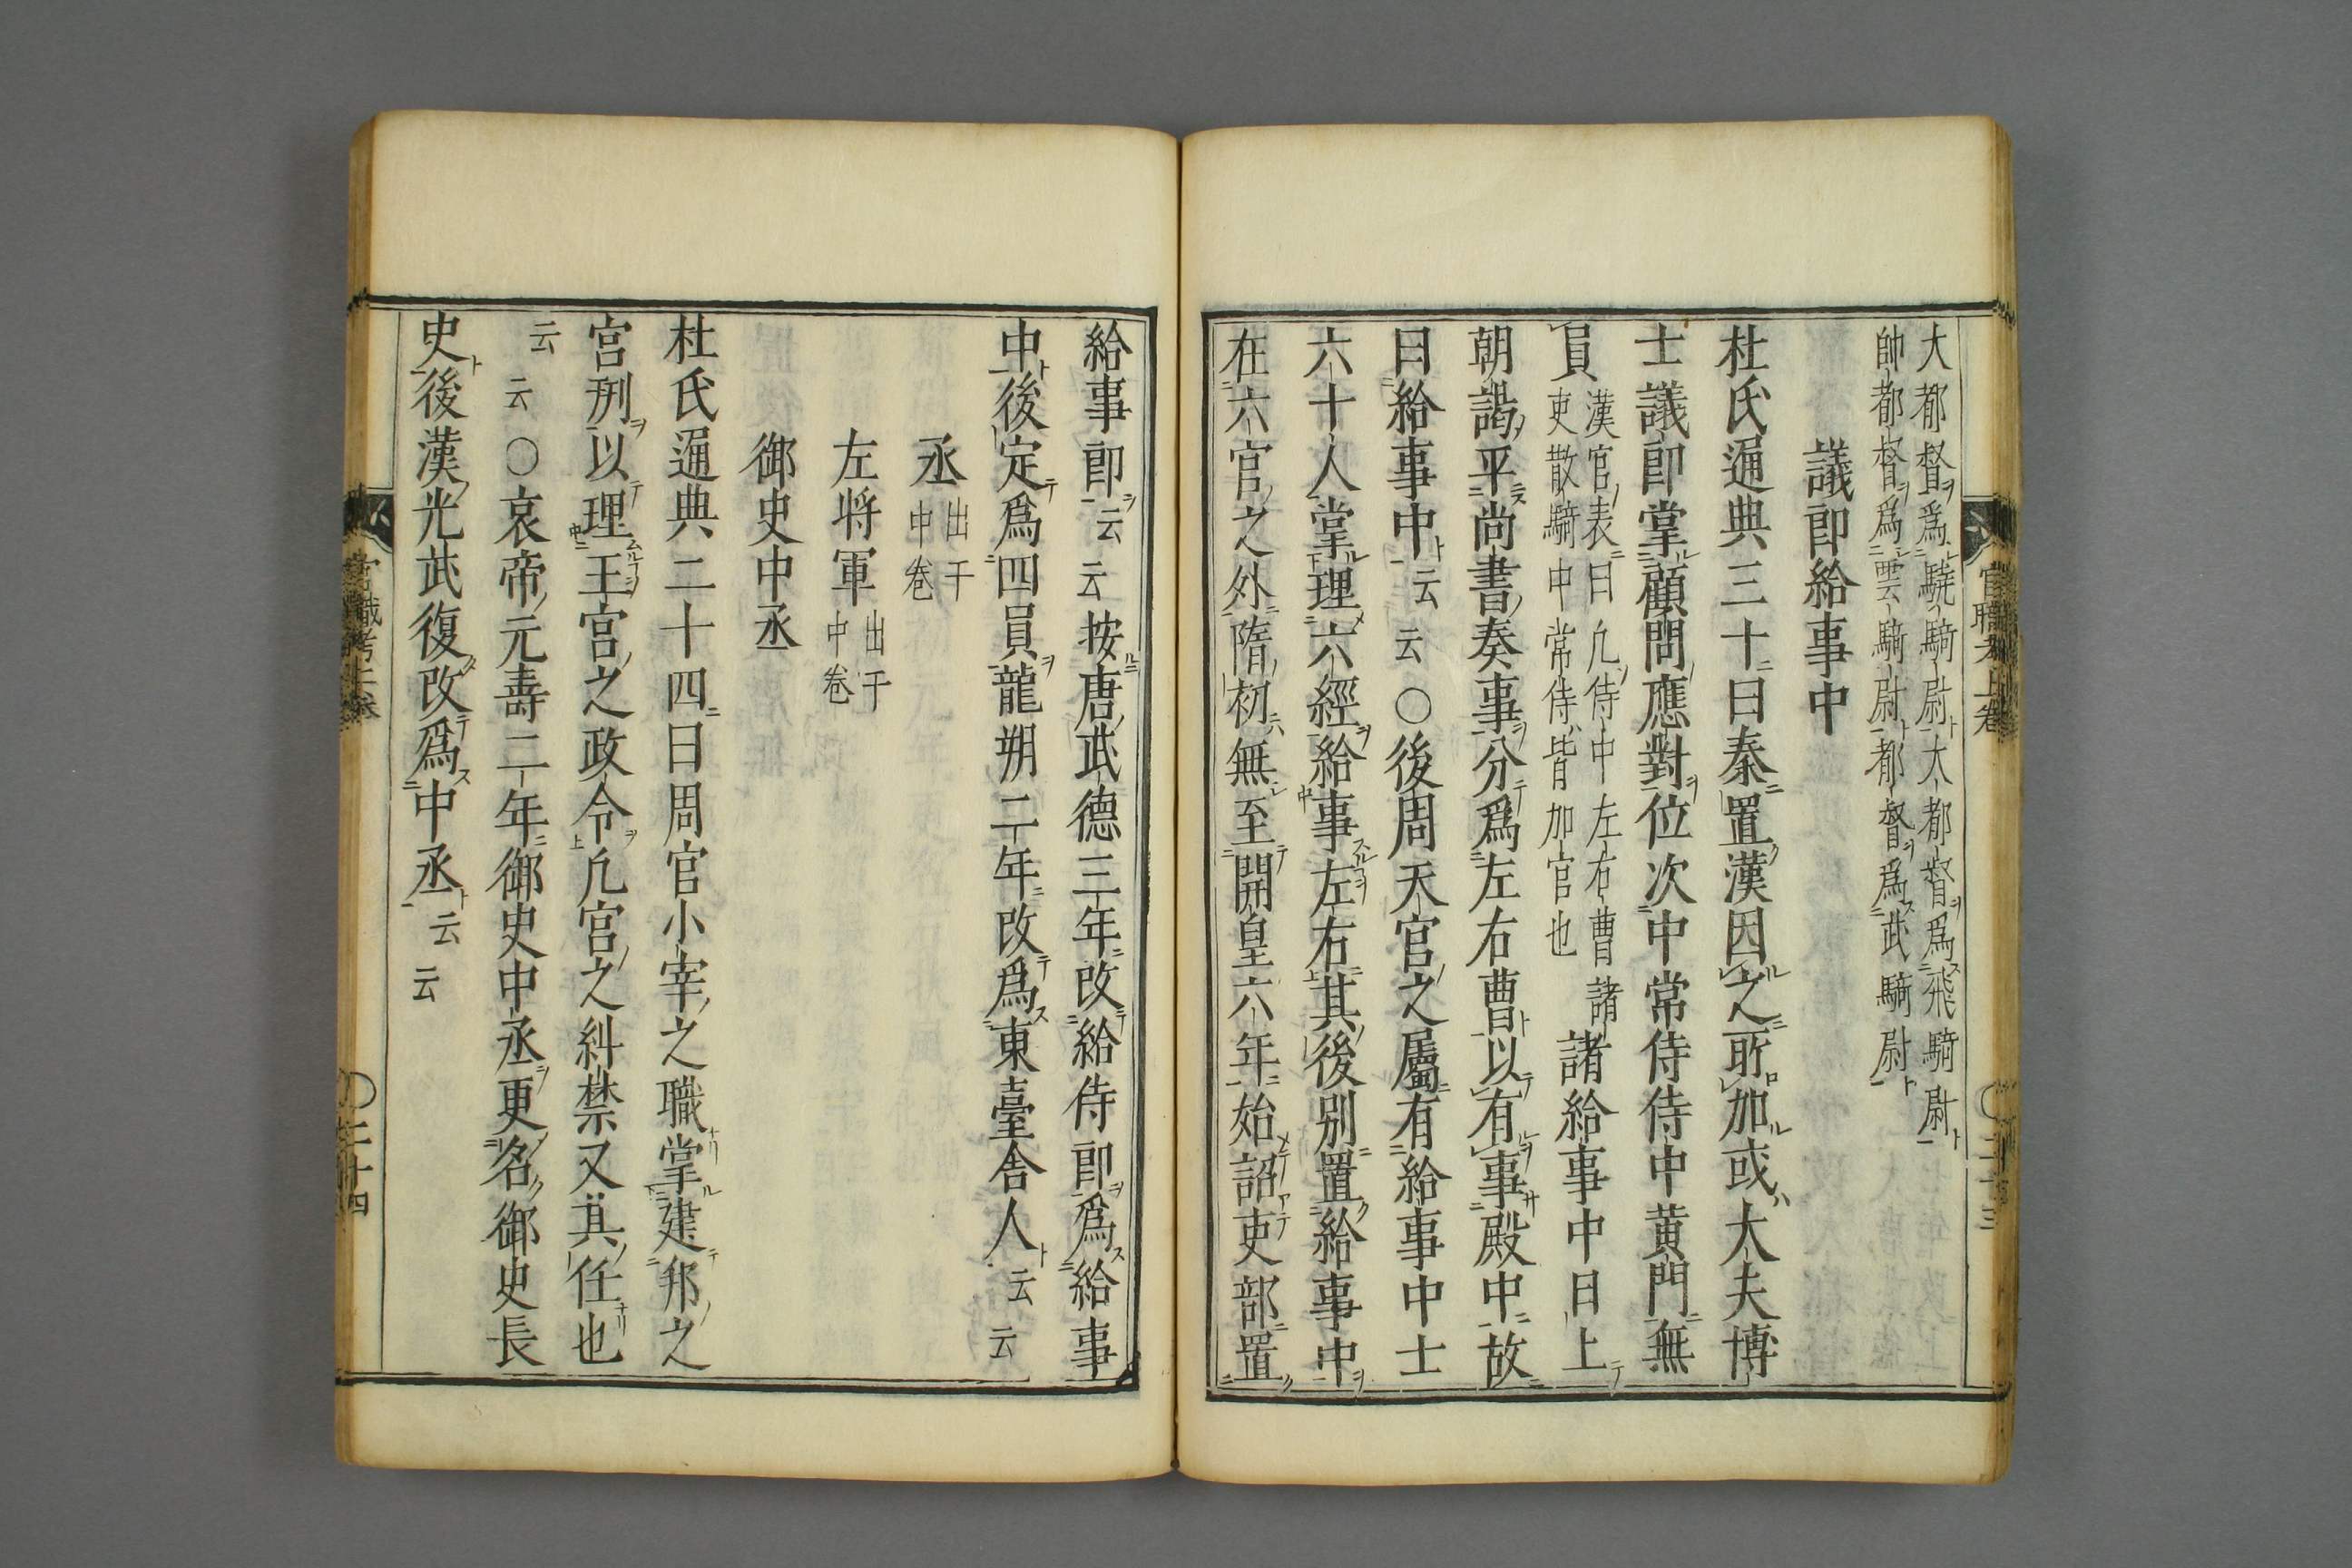 大都督爲驍騎尉大都督爲飛騎尉
帥都督爲雲騎尉都督爲武騎尉
議郎給事中
杜氏通典三十曰秦置漢因之所加或大夫博
士議郎掌顧問應對位次中常侍侍中黄門無
員
漢官表曰凢侍中左右曹諸
吏散騎中常侍皆加官也
諸給事中日上
朝謁平尚書奏事分爲左右曹以有事殿中故
曰給事中云云○後周天官之屬有給事中士
六十人掌理六經給事左右其後別置給事中
在六官之外隋初無至開皇六年始詔吏部置
官職考上卷
○二十三
給事郎云云按唐武德三年改給侍郎爲給事
中後定爲四員龍朔二年改爲東臺舍人云云
丞
出于
中卷
左将軍
出于
中卷
御史中丞
杜氏通典二十四曰周官小宰之職掌建邦之
宮刑以理王宮之政令凢宮之糾禁又其任也
云云○哀帝元壽二年御史中丞更名御史長
史後漢光武復改爲中丞云云
官職考上卷
○二十四